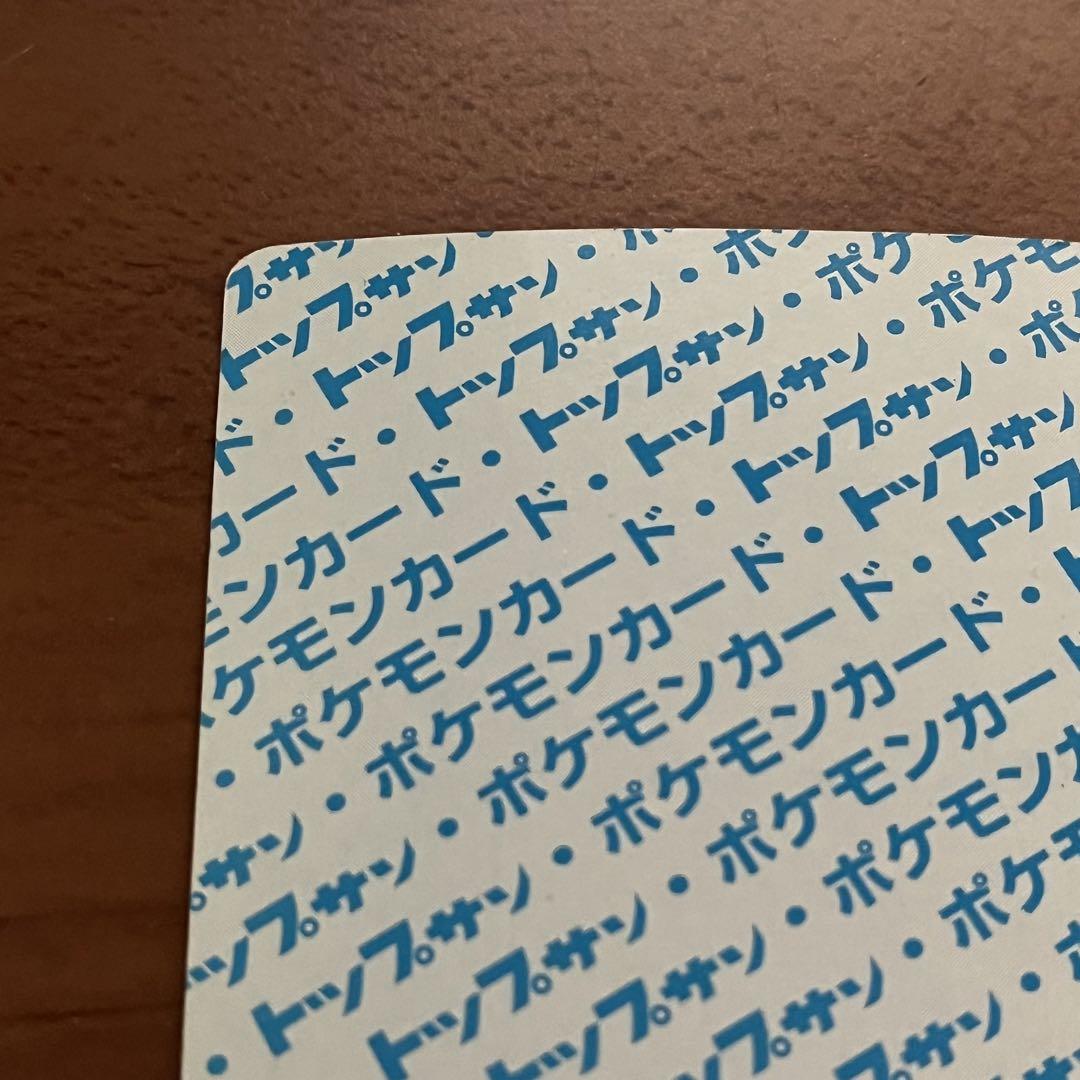 プサン
トップサン・
ド・トップサン・
カード・トップサン・ポケ
モンカード・トップサン・ポケ
ケモンカード・トップサン・ポケモ
・ポケモンカード・トップサン・ポ
プサン・ポケモンカード・トップサン
ップサン・ポケモンカード・トップ
・トップサン・ポケモンカード・ト
トップサン・ポケモンカード
トップサン・ポケモンカ
ップサン・ポケモ
サン・ポ